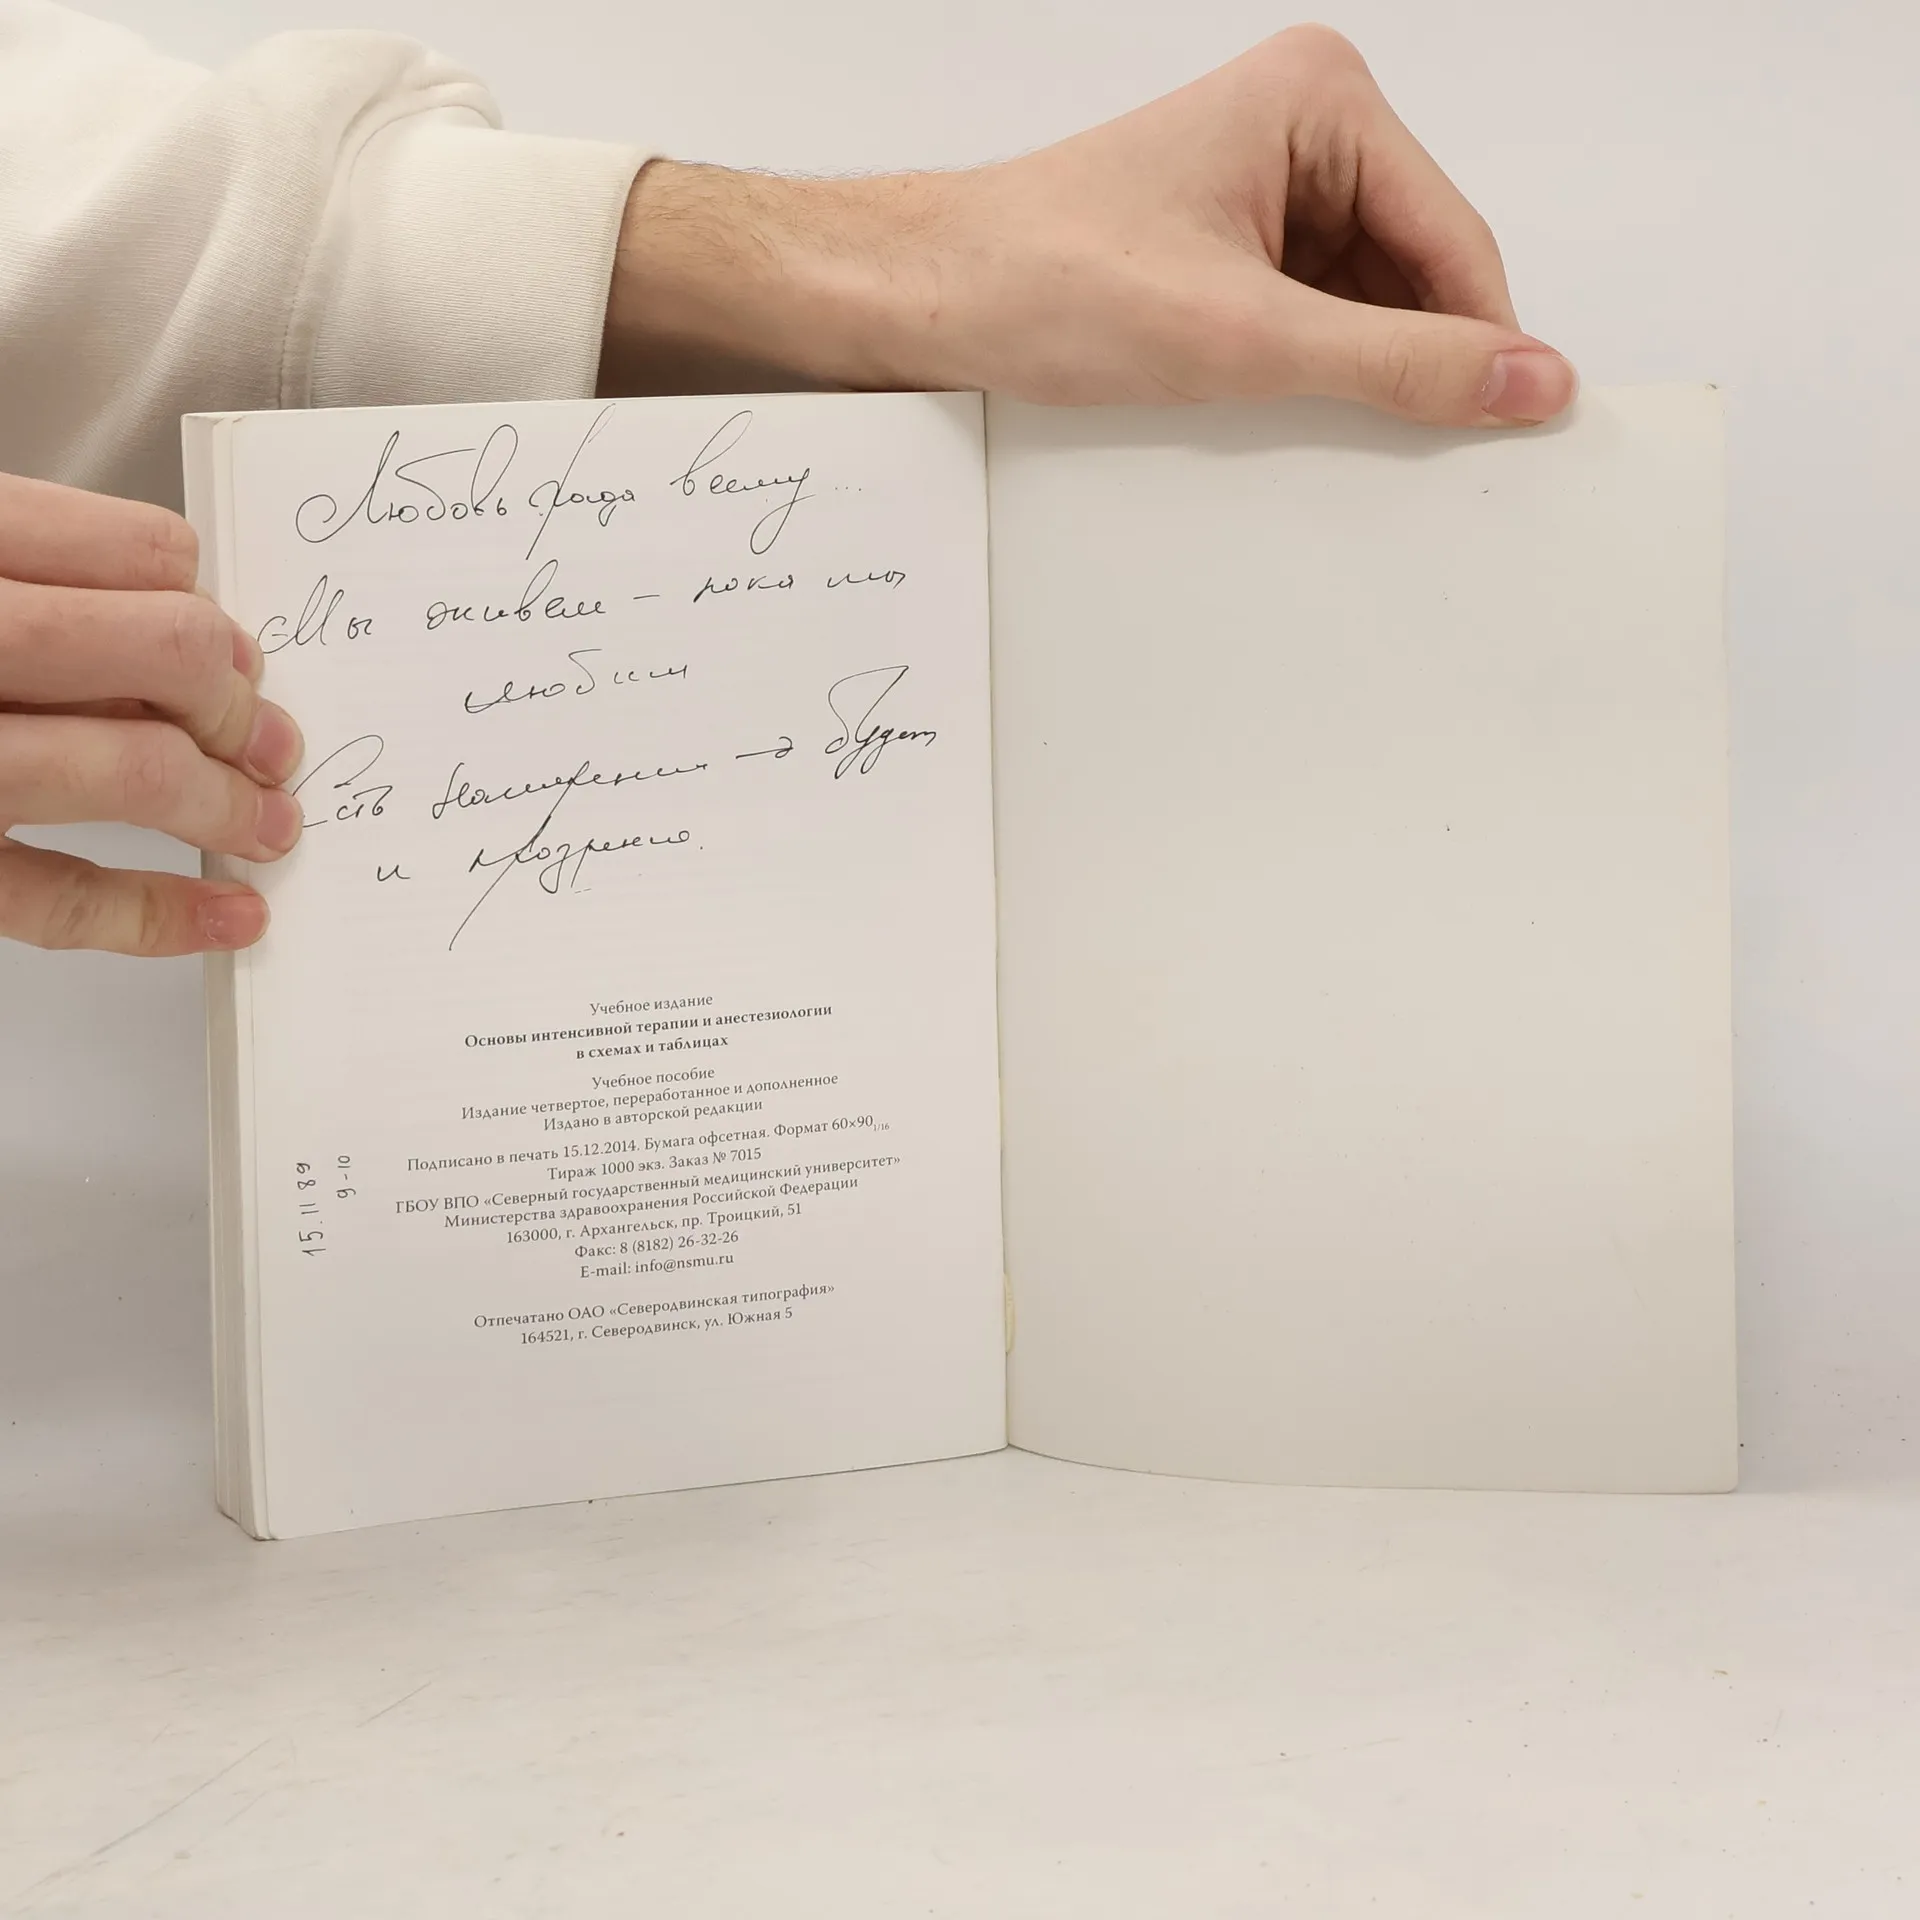 Любовь рада всему...
Мы живем – пока мы
любим
Есть намерение → будет
и прозрение.
Учебное издание
Основы интенсивной терапии и анестезиологии
в схемах и таблицах
Учебное пособие
Издание четвертое, переработанное и дополненное
Издано в авторской редакции
Подписано в печать 15.12.2014. Бумага офсетная. Формат 60×90 1/16
Тираж 1000 экз. Заказ № 7015
ГБОУ ВПО «Северный государственный медицинский университет»
Министерства здравоохранения Российской Федерации
163000, г. Архангельск, пр. Троицкий, 51
Факс: 8 (8182) 26-32-26
E-mail: info@nsmu.ru
Отпечатано ОАО «Северодвинская типография»
164521, г. Северодвинск, ул. Южная 5
15.11 89
9-10